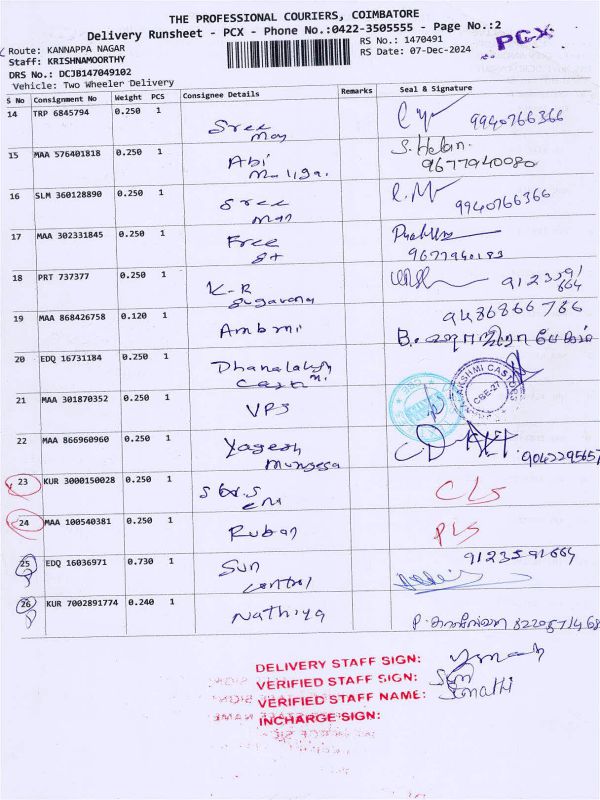 THE PROFESSIONAL COURIERS, COIMBATORE
Delivery Runsheet - PCX - Phone No.:0422-3505555 - Page No.:2
PCX
Route: KANNAPPA NAGAR
RS No.: 1470491
Staff: KRISHNAMOORTHY
RS Date: 07-Dec-2024
DRS No.: DCJB147049102
Vehicle: Two Wheeler Delivery
S No Consignment No Weight PCS Consignee Details Remarks Seal & Signature
14 TRP 6845794 0.250 1 Sree 9940766366
15 MAA 576401818 0.250 1 Abi S. Helan.
9677940080
16 SLM 360128890 0.250 1 Sree 9940766366
17 MAA 302331845 0.250 1 Free
St 9677940183
18 PRT 737377 0.250 1 K-R 9123591
664
19 MAA 868426758 0.120 1 9486866786
20 EDQ 16731184 0.250 1
21 MAA 301870352 0.250 1 VPS
LAKSHMI CASTINGS
CBE-27
22 MAA 866960960 0.250 1 Yagesh
Mungesa
23 KUR 3000150028 0.250 1 CLS
24 MAA 100540381 0.250 1 Ruban PLS
25 EDQ 16036971 0.730 1 Sun 9123591664
Control
26 KUR 7002891774 0.240 1 Nathiya
DELIVERY STAFF SIGN:
VERIFIED STAFF SIGN:
VERIFIED STAFF NAME:
INCHARGE SIGN: